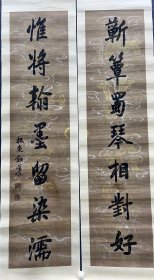 蘄簟蜀琴相對好
惟將翰墨留染濡